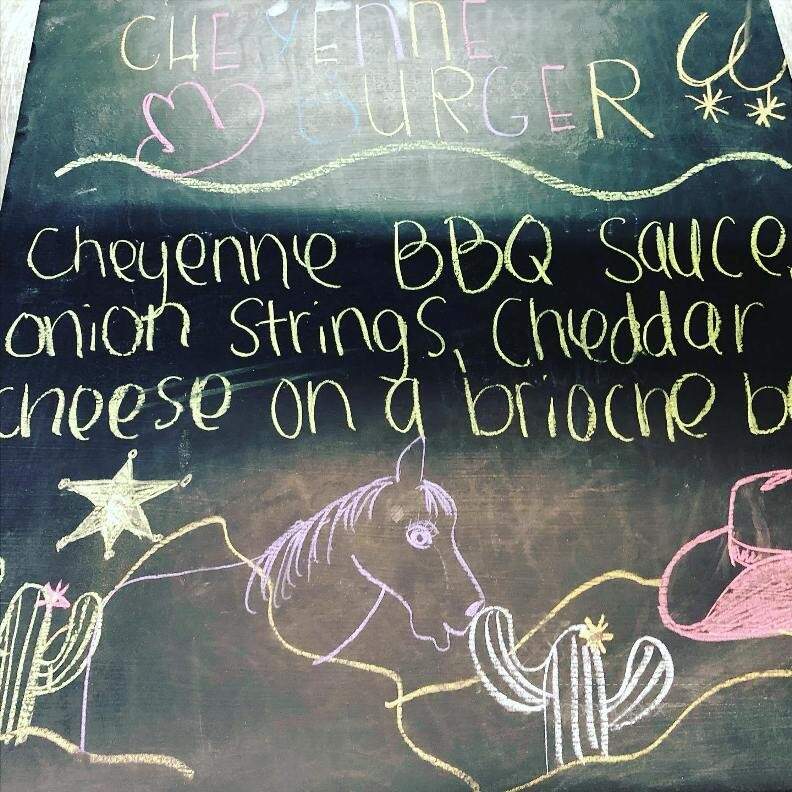 CHEYENNE
BURGER
Cheyenne BBQ Sauce,
onion strings, cheddar
cheese on a brioche b